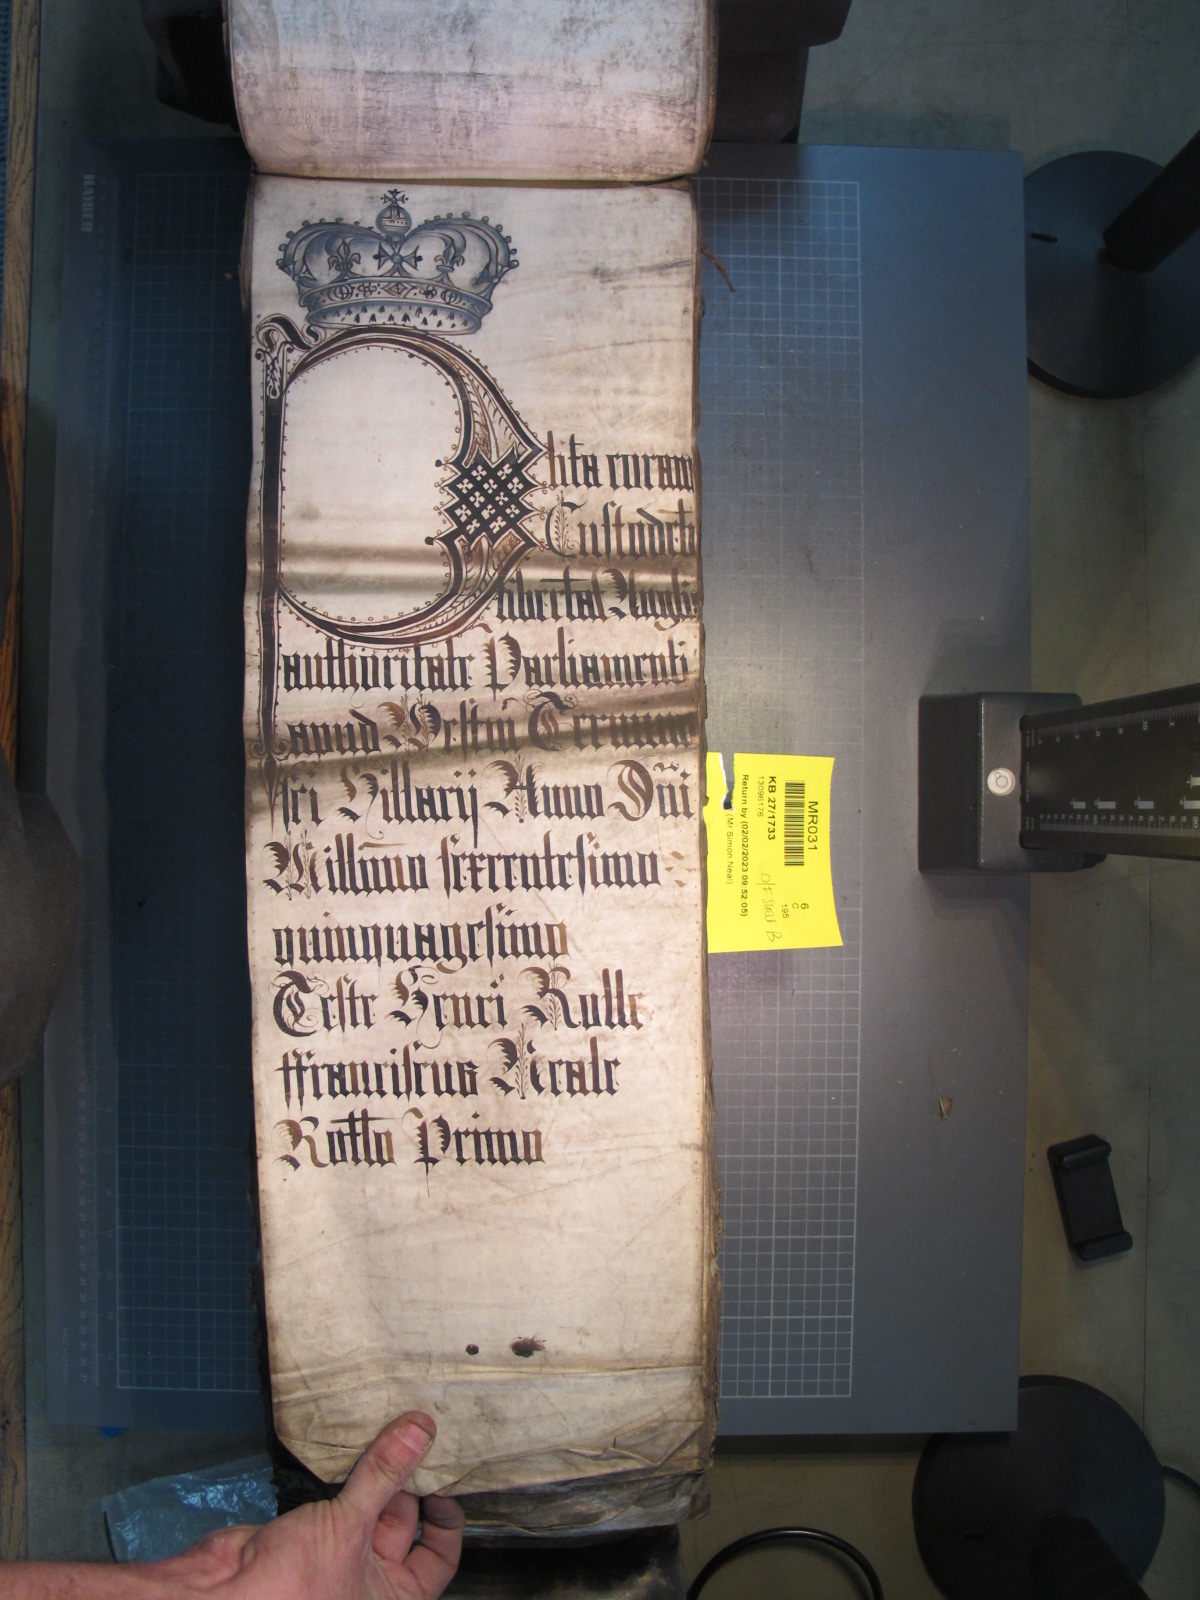 Plita coram
Custodıb
libertat Anglie
authoritate Parliamenti
apud Westm̃ Termino
sci Hillarij Anno Dñi
Millimo sexcentesimo
quinquagesimo
Teste Henri Rolle
ffranciscus Neale
Rotlo Primo
MR031
KB 27/1733
13096176
Return by (02/02/2023 09:52:05)
(Mr Simon Neal)
6
C
195
O/F SHELF B